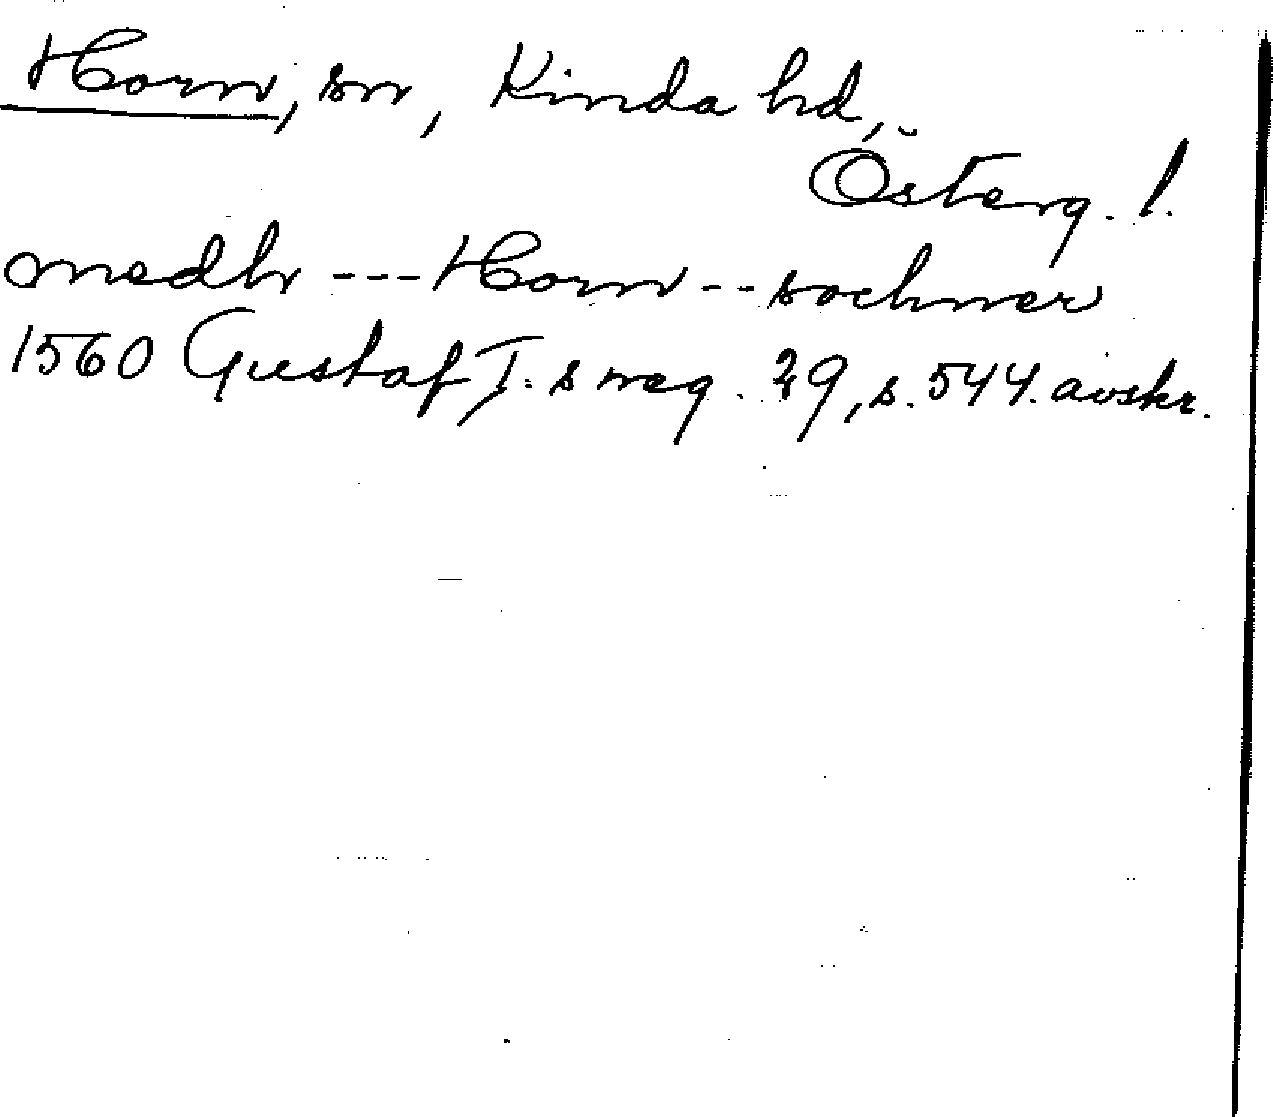 Horn, sn, Kinda hd,
Österg. l.
medh --- Horn -- sochner
1560 Gustaf I:s reg. 29, s. 544. avskr.